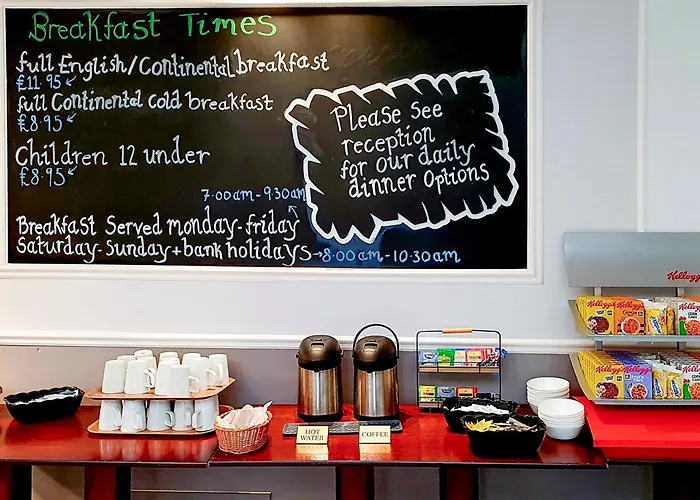 Breakfast Times
full English/Continental breakfast
£11.95
full Continental cold breakfast
£8.95
Children 12 under
£8.95
7:00am-9:30am
Breakfast Served monday-friday
Saturday-Sunday+bank holidays→8:00am-10:30am
Please See
reception
for our daily
dinner Options
HOT
WATER
COFFEE
Kellogg's